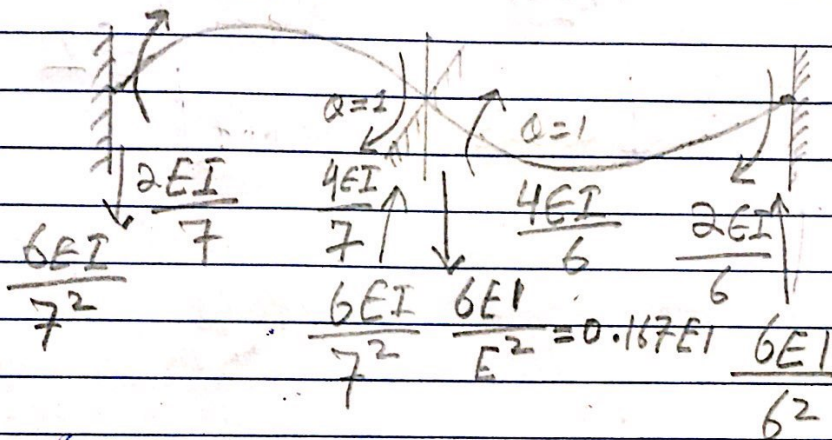 θ=1 θ=1
2EI/7 4EI/7 4EI/6 2EI/6
6EI/7² 6EI/7² 6EI/E² =0.167EI 6EI/6²